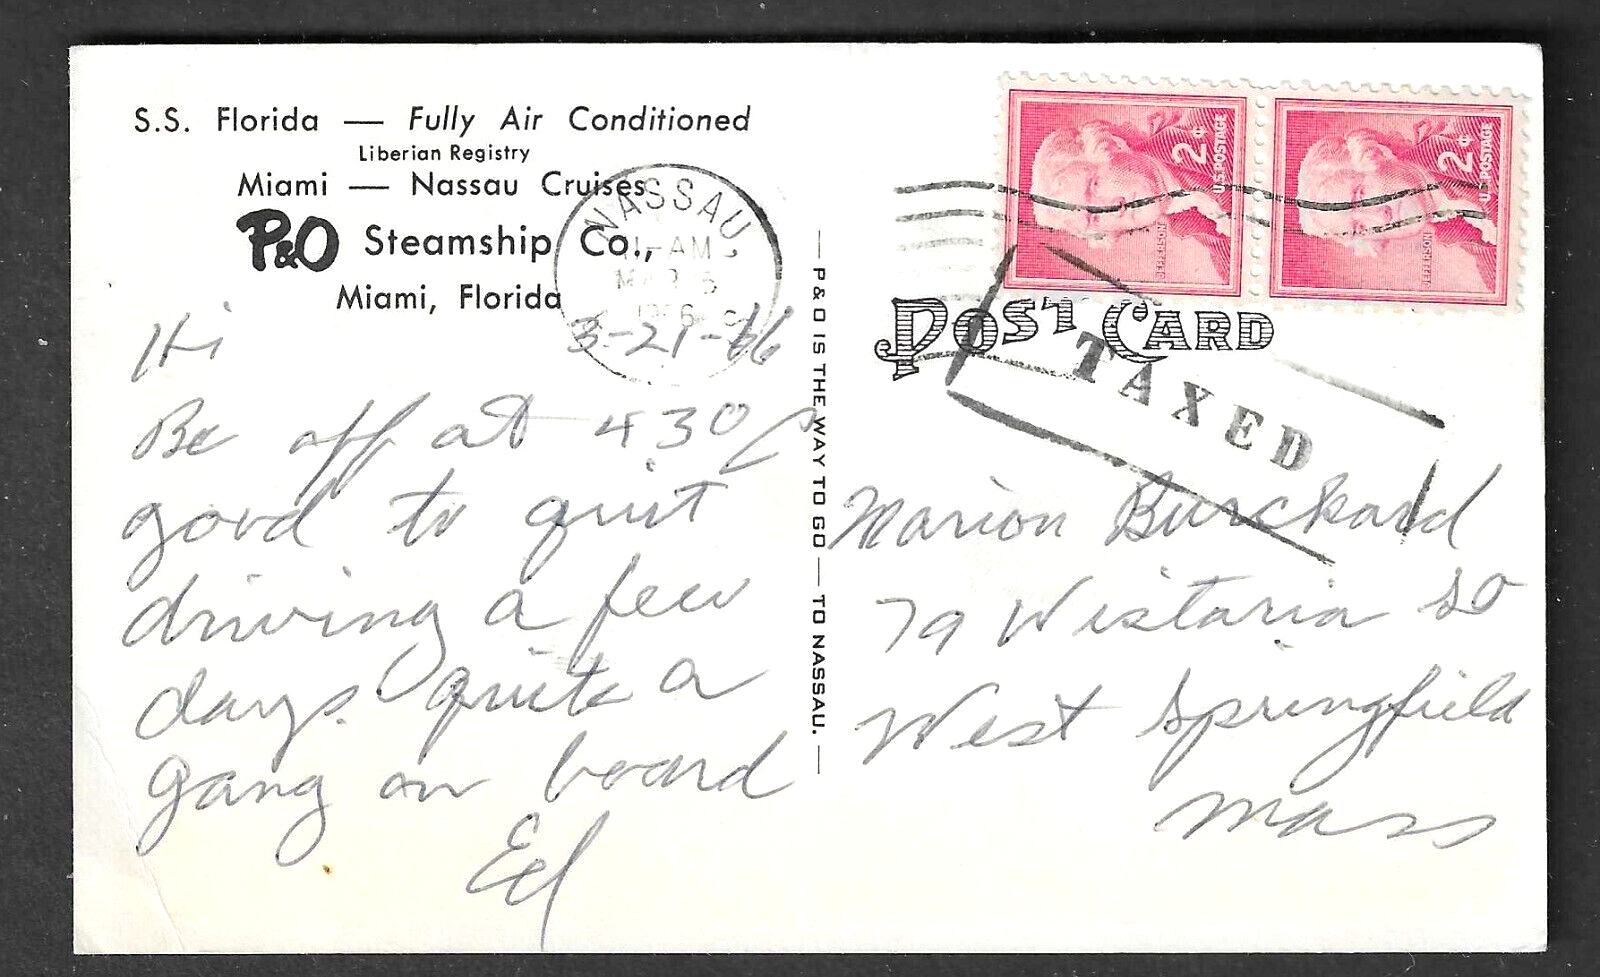 S.S. Florida — Fully Air Conditioned
Liberian Registry
Miami — Nassau Cruises
P&O Steamship Co.,
Miami, Florida
NASSAU,
AM
MAR
Hi 3-21-66
Be off at 430
good to quit
driving a few
days. quite a
gang on board
Ed
— P & O IS THE WAY TO GO — TO NASSAU. —
2¢
U.S. POSTAGE
JEFFERSON
2¢
U.S. POSTAGE
JEFFERSON
POST CARD
TAXED
Marion Burckard
79 Wistaria so
West Springfield
Mass